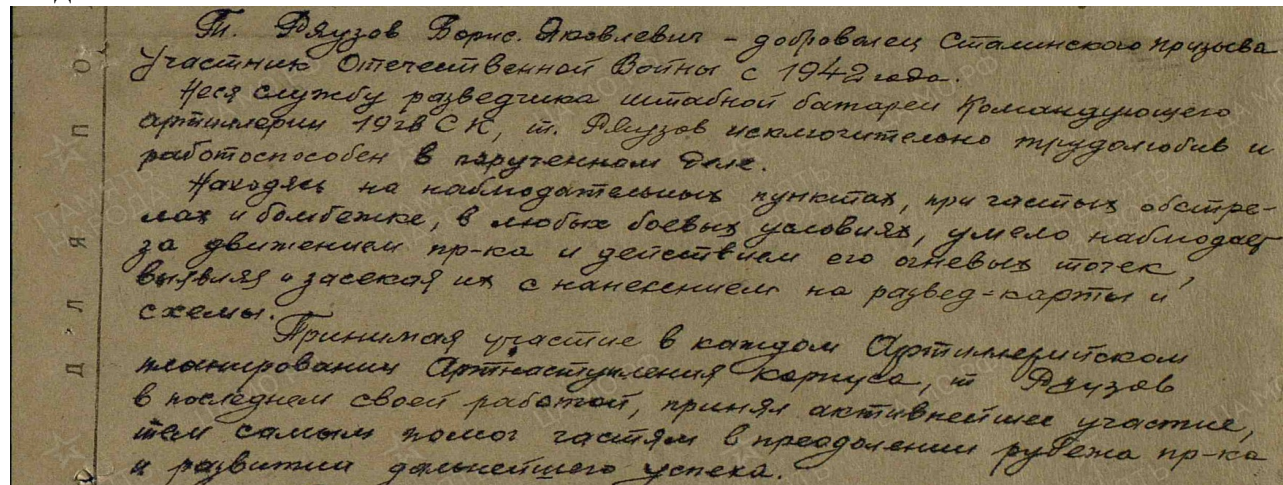 Т. Ряузов Борис. Яковлевич – доброволец Сталинского призыва
Участник Отечественной Войны с 1942 года.
Неся службу разведчика штабной батареи Командующего
артиллерии 19 гв СК, т. Ряузов исключительно трудолюбив и
работоспособен в порученном деле.
Находясь на наблюдательных пунктах, при частых обстре-
лах и бомбежке, в любых боевых условиях, умело наблюдает
за движением пр-ка и действием его огневых точек,
выявляя и засекая их с нанесением на развед-карты и
схемы.
Принимая участие в каждом Артиллерийском
планировании Артнаступления корпуса, т Ряузов
в последнем своей работой, принял активнейшее участие,
тем самым помог частям в преодолении рубежа пр-ка
и развития дальнейшего успеха.
Д л я П О